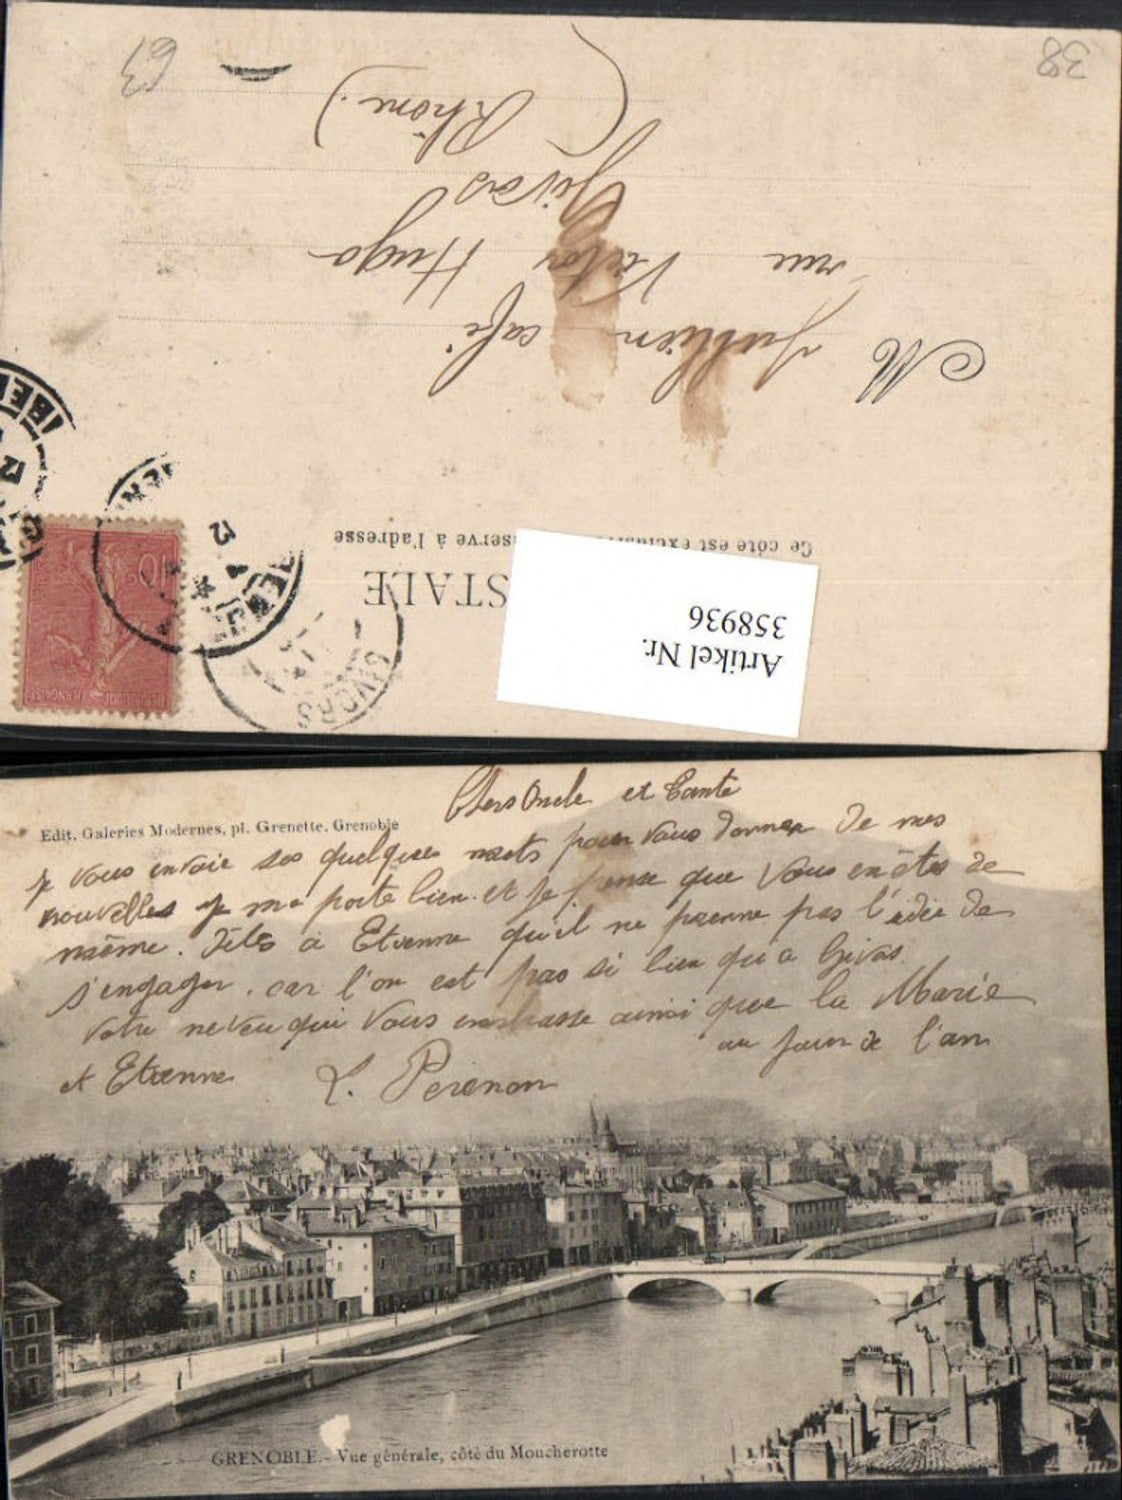 38
63
M Jullien café
rue Victor Hugo
Givors
(Rhône.)
Ce côté est exclusi serve à l'adresse
STALE
Artikel Nr.
358936
GIVORS
10
Edit. Galeries Modernes, pl. Grenette, Grenoble
Chers Oncle et Tante
je vous envoie ses quelques mots pour vous donner de mes
nouvelles je me porte bien et je pense que vous en êtes de
même. Dites à Etienne qu'il ne prenne pas l'idée de
s'engager. car l'on est pas si bien qu'a Givors.
Votre neveu qui vous embrasse ainsi que la Marie
et Etienne au jour de l'an
L. Perenon
GRENOBLE.- Vue générale, côté du Moucherotte